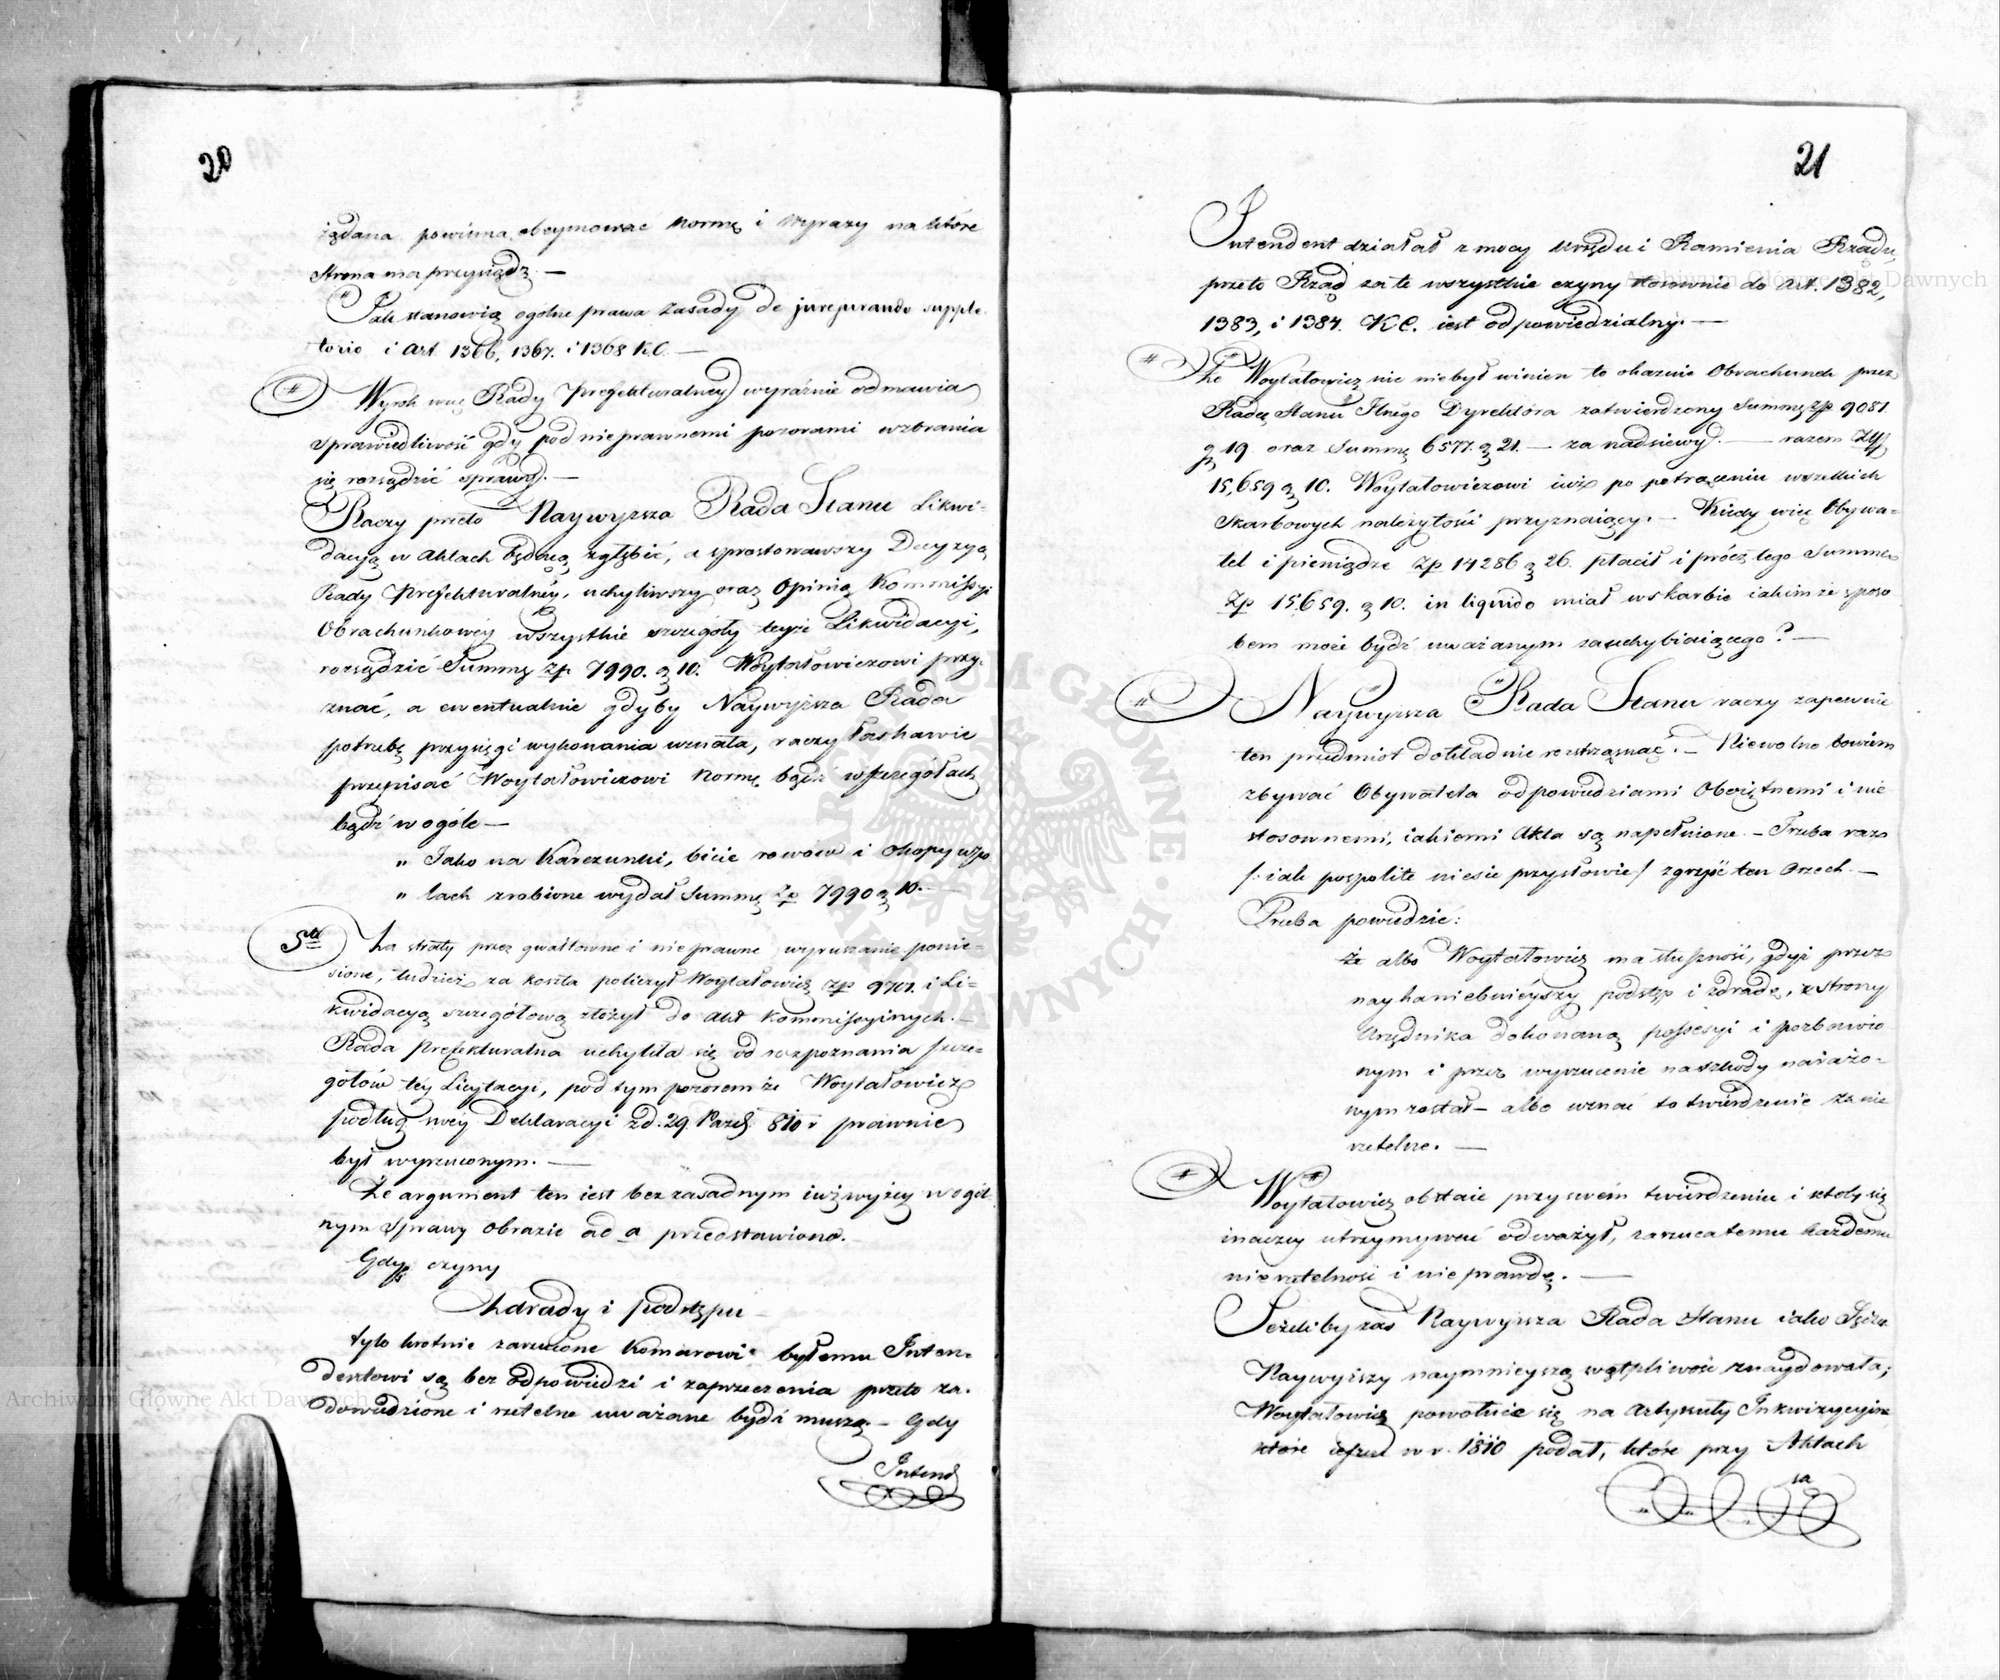 20
żądana powinna obeymować Normę i Wyrazy na które
Strona ma przysiądz. —
Jak stanowią ogólne prawa Zasady de jurejurando supple-
torio i Art. 1366, 1367. i 1368 K.C. —
# Wyrok więc Rady Prefekturalney wyraźnie odmawia
Sprawiedliwość gdy pod nieprawnemi pozorami wzbrania
się rozsądzić sprawy. —
Raczy przeto Naywyższa Rada Stanu Likwi-
dacyą w Aktach będącą zgłębić, a sprostowawszy Decyzyą
Rady Prefekturalney, uchyliwszy oraz Opinią Kommissyi
Obrachunkowey wszystkie szczegóły teyże Likwidacyi,
rozsądzić Summę Zp 7990. g 10. Woytałowiczowi przy-
znać, a ewentualnie gdyby Naywyższa Rada
potrzebę przysięgi wykonania uznała, raczy łaskawie
przepisać Woytałowiczowi Normę bądź w szczegółach
bądź w ogóle —
" Jako na Karczunki, bicie rowów i okopy w po
" lach zrobione wydał Summę Zp 7990 g 10. —
5te Za straty przez gwałtowne i nieprawne wyruszanie ponie-
sione, tudzież za koszta policzył Woytałowicz Zp 9701. i Li-
kwidacyą szczegółową złożył do Akt Kommissyinych. —
Rada Prefekturalna uchyliła się od rozpoznania szcze-
gółów tey Licytacyi, pod tym pozorem że Woytałowicz
podług swey Deklaracyi z d. 29 Paźd. 810 r prawnie
był wyrzuconym. —
Że argument ten iest bezzasadnym iuż wyżey w ogól-
nym Sprawy Obrazie ad a przedstawiono. —
Gdy czyny
Zdrady i podstępu —
tylo krotnie zarzucone Komarowi byłemu Inten-
dentowi są bez odpowiedzi i zaprzeczenia przeto za-
dowodzione i rzetelne uważane bydź muszą — Gdy
Intend
21
Intendent działał z mocy Urzędu i Ramienia Rządu,
przeto Rząd za te wszystkie czyny stosownie do Art. 1382,
1383, i 1384. K.C. iest odpowiedzialny. —
# Że Woytałowicz nic niebył winien to okazuie Obrachunek przez
Radcę Stanu Dyrektora zatwierdzony Summę Zp 9081.
g 19 oraz Summę 6577. g 21. — za nadsiewy. — razem Zp
15,659 g 10. Woytałowiczowi iuż po potrąceniu wszelkich
Skarbowych należytości przyznaiący. — Kiedy więc Obywa-
tel i pieniądze Zp 14286 g 26. płacił i prócz tego Summe
Zp 15659. g 10. in liquido miał w skarbie iakimże sposo
bem może bydź uważanym za uchybiaiącego? —
# Naywyższa Rada Stanu raczy zapewnie
ten przedmiot dokładnie roztrząsnąć. — Niewolno bowiem
zbywać Obywatela odpowiedziami Oboiętnemi i nie
stosownemi, iakiemi Akta są napełnione. — Trzeba raz
/: iak pospolite niesie przysłowie / zgryźć ten Orzech. —
Trzeba powiedzieć:
że albo Woytałowicz ma słuszność, gdyż przez
nayhaniebnieyszy podstęp i zdradę, z strony
Urzędnika dokonaną possesyi i pozbawio
nym i przez wyrzucenie na szkody narażo-
nym został — albo uznać to twierdzenie za nie
rzetelne. —
# Woytałowicz obstaie przy swém twierdzeniu i ktoby się
inaczey utrzymywać odważył, zarzuca temu każdemu
nierzetelność i nieprawdę. —
Jeżeliby zaś Naywyższa Rada Stanu iako Sędzia
Naywyższy naymnieyszą wątpliwość znaydowała;
Woytałowicz powołuie się na Artykuły Inkwizycyine
które ieszcze w r. 1810 podał, które przy Aktach
są
Archiwum Główne Akt Dawnych
Archiwum Główne Akt Dawnych
ARCHIWUM GŁÓWNE AKT DAWNYCH